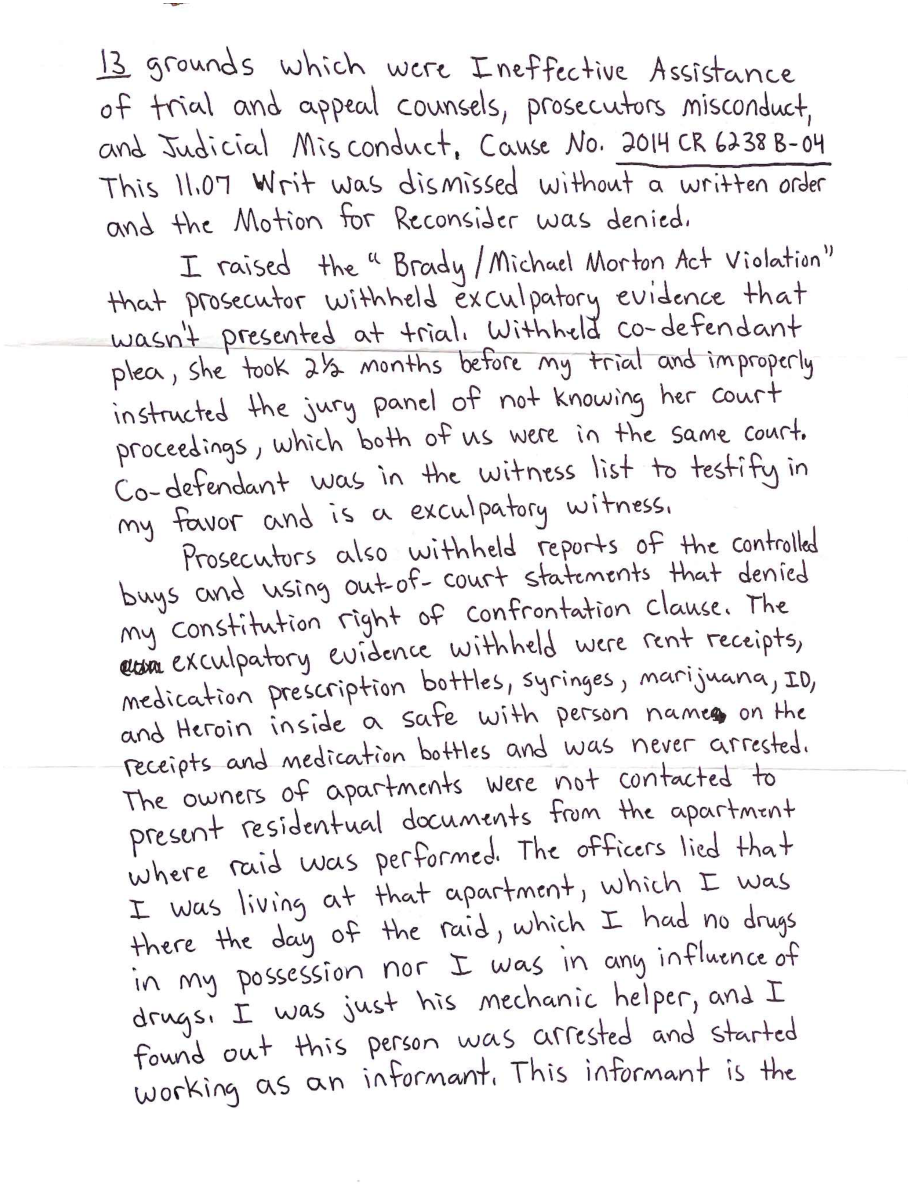 13 grounds which were Ineffective Assistance
of trial and appeal counsels, prosecutors misconduct,
and Judicial Misconduct, Cause No. 2014 CR 6238 B-04
This 11.07 Writ was dismissed without a written order
and the Motion for Reconsider was denied.
I raised the "Brady/Michael Morton Act Violation"
that prosecutor withheld exculpatory evidence that
wasn't presented at trial. Withheld co-defendant
plea, she took 2½ months before my trial and improperly
instructed the jury panel of not knowing her court
proceedings, which both of us were in the same court.
Co-defendant was in the witness list to testify in
my favor and is a exculpatory witness.
Prosecutors also withheld reports of the controlled
buys and using out-of-court statements that denied
my constitution right of confrontation clause. The
exculpatory evidence withheld were rent receipts,
medication prescription bottles, syringes, marijuana, ID,
and Heroin inside a safe with person name on the
receipts and medication bottles and was never arrested.
The owners of apartments were not contacted to
present residentual documents from the apartment
where raid was performed. The officers lied that
I was living at that apartment, which I was
there the day of the raid, which I had no drugs
in my possession nor I was in any influence of
drugs. I was just his mechanic helper, and I
found out this person was arrested and started
working as an informant. This informant is the